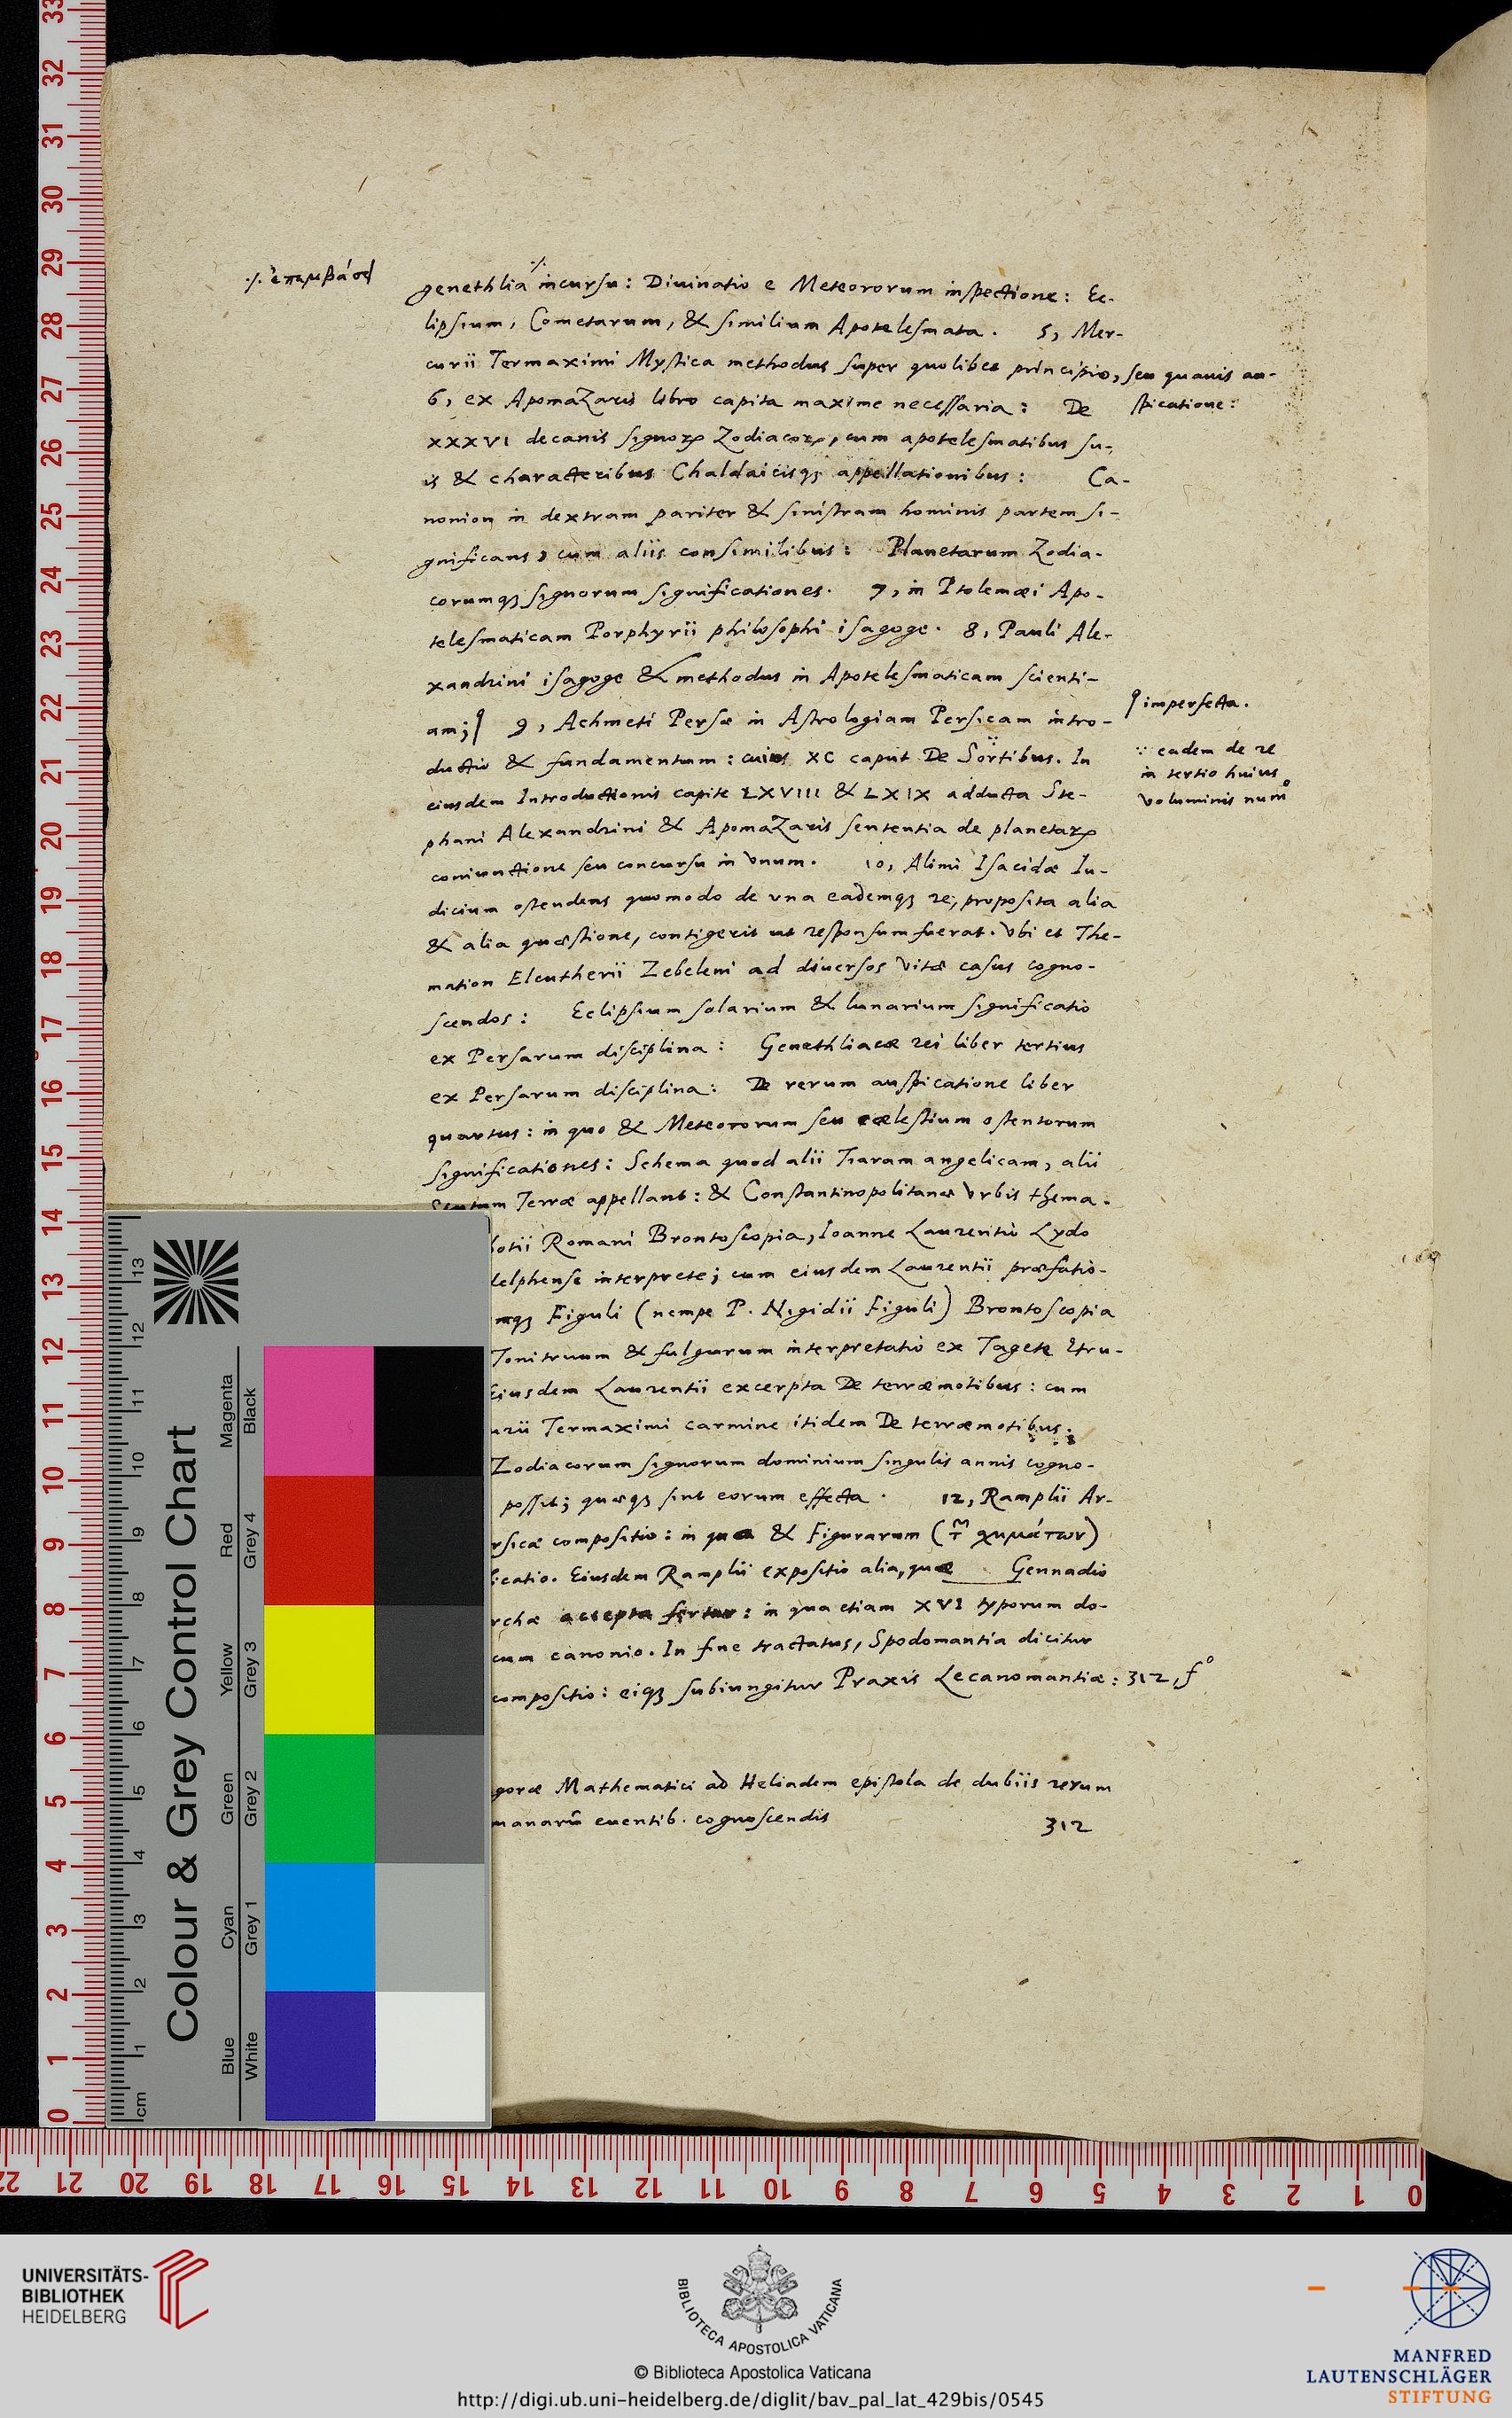 ·/. ἐπεμβάσει
genethlia ·/. incursu: Diuinatio e Meteororum inspectione: Ec-
lipsium, Cometarum, & similium Apotelesmata. 5, Mer-
curii Termaximi Mystica methodus super quolibet principio, seu quauis au-
spicatione:
6, ex Apomazaris libro capita maxime necessaria: De
XXXVI decanis signoꝝ Zodiacoꝝ, cum apotelesmatibus su-
is & characteribus Chaldaicisqꝫ appellationibus: Ca-
nonion in dextram pariter & sinistram hominis partem si-
gnificans, cum aliis consimilibus: Planetarum Zodia-
corumqꝫ signorum significationes. 7, in Ptolemæi Apo-
telesmaticam Porphyrii philosophi isagoge. 8, Pauli Ale-
xandrini isagoge & methodus in Apotelesmaticam scienti-
am; 9, Achmeti Persæ in Astrologiam Persicam intro-
imperfecta.
ductio & fundamentum: cuius XC caput De Sortibus. In
∵ eadem de re
in tertio huius
voluminis num°
eiusdem Introductionis capite LXVIII & LXIX adducta Ste-
phani Alexandrini & Apomazaris sententia de planetaꝝ
coniunctione seu concursu in vnum. 10, Alimi Isacidæ Iu-
dicium ostendens quomodo de vna eademqꝫ re, proposita alia
& alia quæstione, contigerit ut responsum fuerat. Vbi et The-
mation Eleutherii Zebeleni ad diuersos vitæ casus cogno-
scendos: Eclipsium solarium & lunarium significatio
ex Persarum disciplina: Genethliacæ rei liber tertius
ex Persarum disciplina: De rerum auspicatione liber
quartus: in quo & Meteororum seu cœlestium ostentorum
significationes: Schema quod alii Tiaram angelicam, alii
Terræ appellant: & Constantinopolitanæ Vrbis thema.
otii Romani Brontoscopia, Ioanne Laurentio Lydo
delphense interprete; cum eiusdem Laurentii præfatio-
mqꝫ Figuli (nempe P. Nigidii Figuli) Brontoscopia
Tonitruum & fulgurum interpretatio ex Tagete Etru-
Eiusdem Laurentii excerpta De terræmotibus: cum
urii Termaximi carmine itidem De terræmotibus.
Zodiacorum signorum dominium singulis annis cogno-
possit; quæqꝫ sint eorum effecta. 12, Ramplii Ar-
rsicæ compositio: in qua & Figurarum (τ͂ χυμάτων)
icatio. Eiusdem Ramplii expositio alia, quæ Gennadio
rchæ accepta fertur: in qua etiam XVI typorum do-
cum canonio. In fine tractatus, Spodomantia dicitur
compositio: eiqꝫ subiungitur Praxis Lecanomantiæ: 312, f°
goræ Mathematici ad Heliadem epistola de dubiis rerum
manarū euentib. cognoscendis 312
Colour & Grey Control Chart
Magenta
Black
Red
Grey 4
Yellow
Grey 3
Green
Grey 2
Cyan
Grey 1
Blue
White
cm
UNIVERSITÄTS-
BIBLIOTHEK
HEIDELBERG
BIBLIOTECA APOSTOLICA VATICANA
© Biblioteca Apostolica Vaticana
http://digi.ub.uni-heidelberg.de/diglit/bav_pal_lat_429bis/0545
MANFRED
LAUTENSCHLÄGER
STIFTUNG